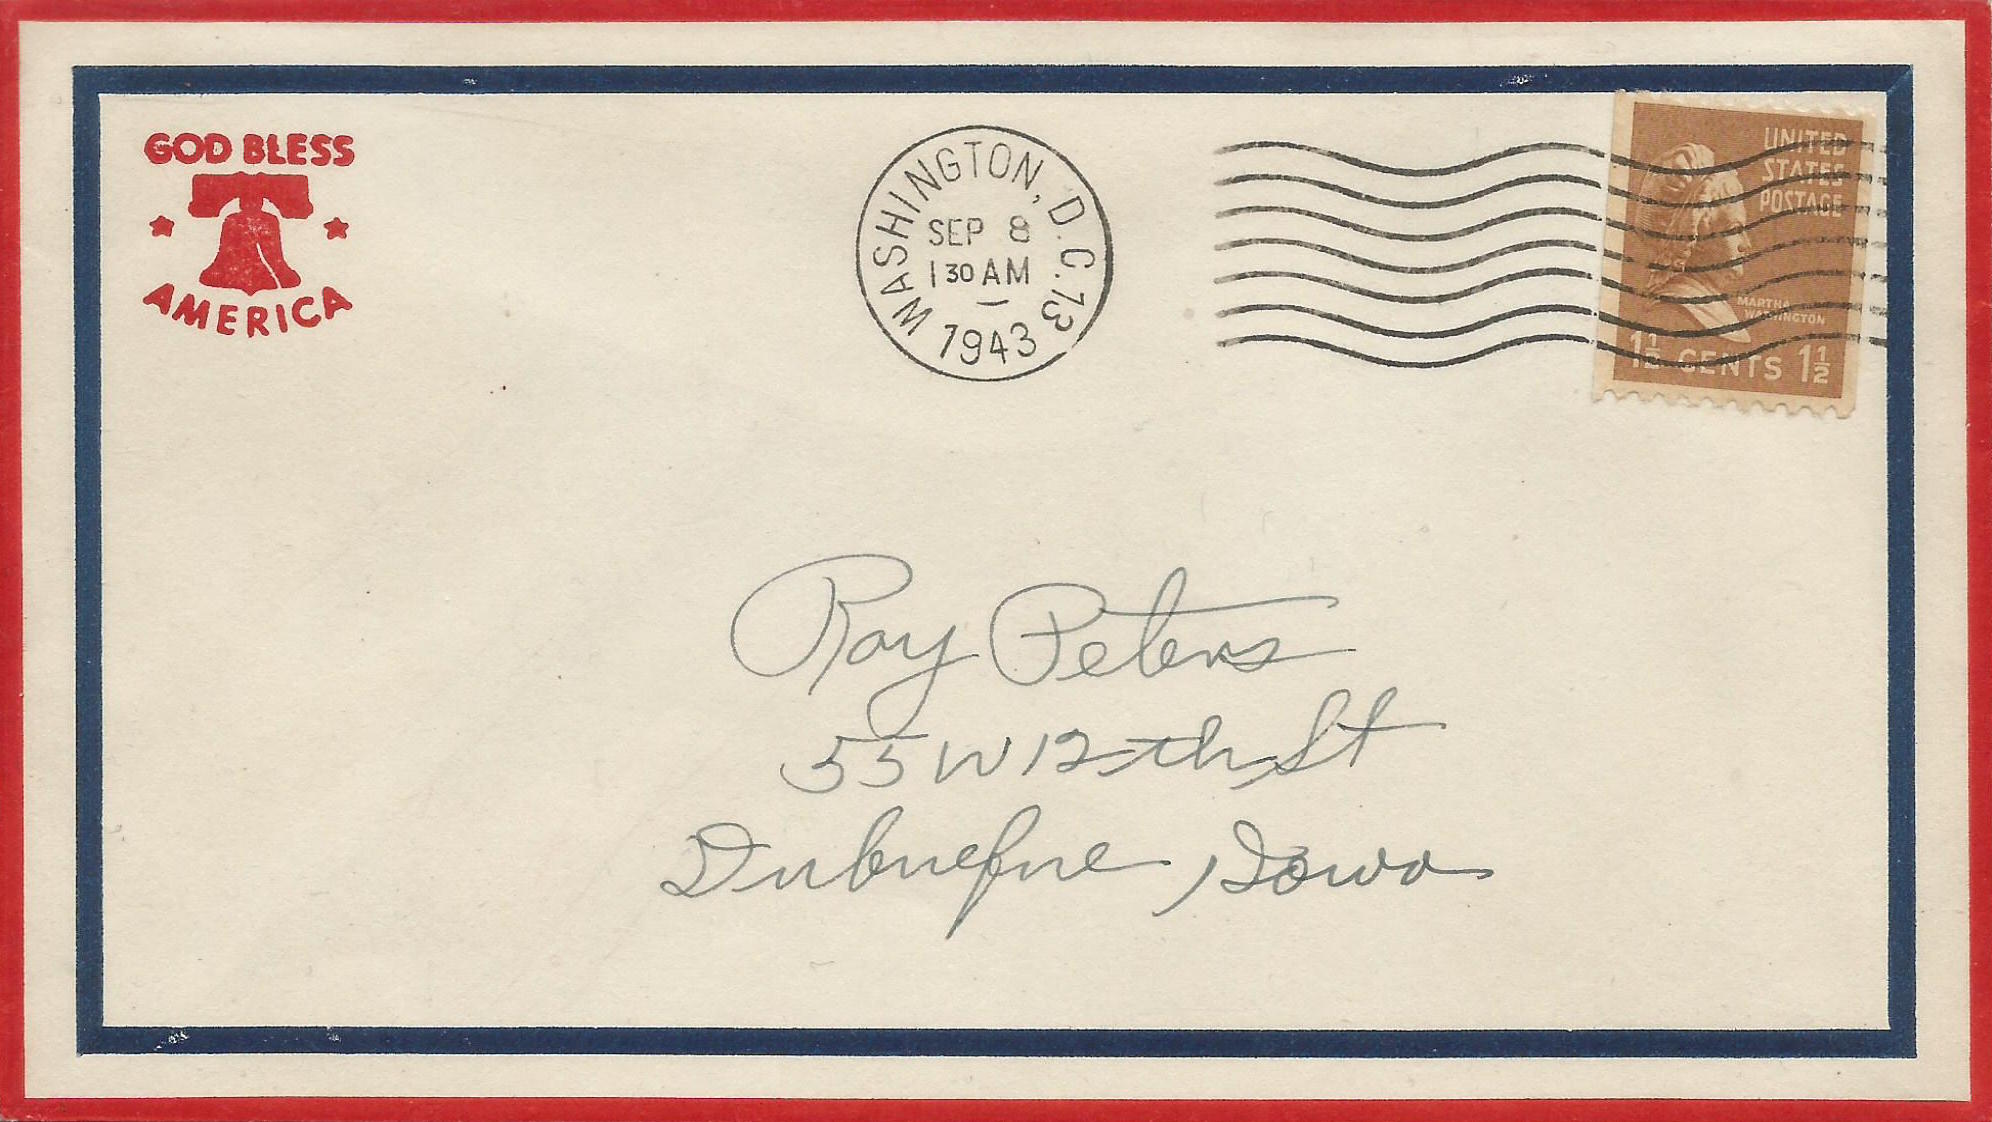 GOD BLESS
AMERICA
WASHINGTON, D.C. 13
SEP 8
1 30 AM
1943
UNITED
STATES
POSTAGE
MARTHA
WASHINGTON
1½ CENTS 1½
Roy Peters
55 W 12th St
Dubuque, Iowa